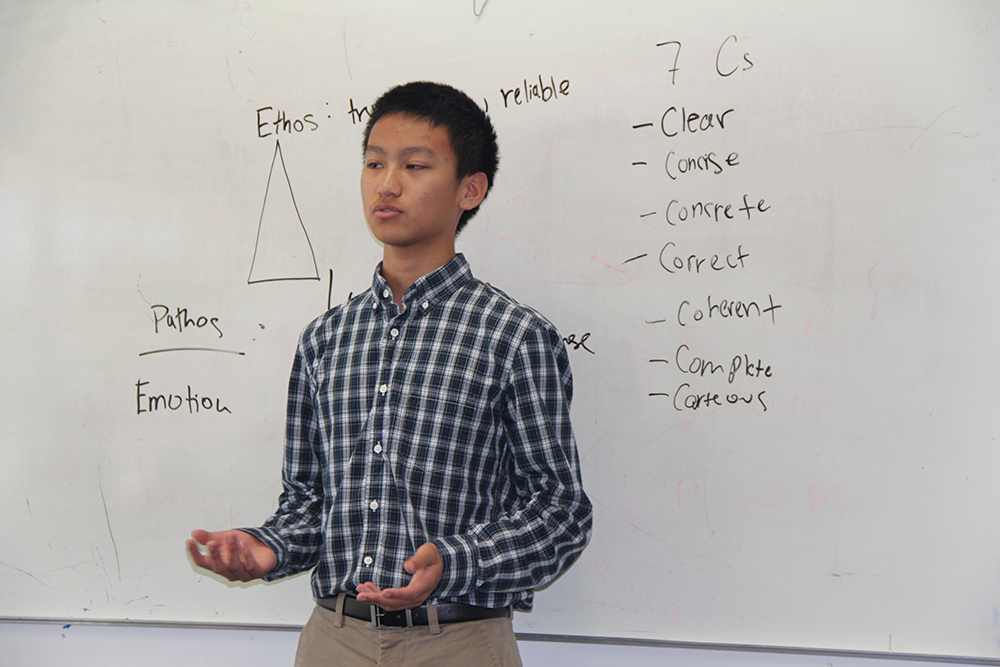 Ethos: reliable
Pathos :
Emotion
7 Cs
- Clear
- Concise
- Concrete
- Correct
- Coherent
- Complete
- Corteous